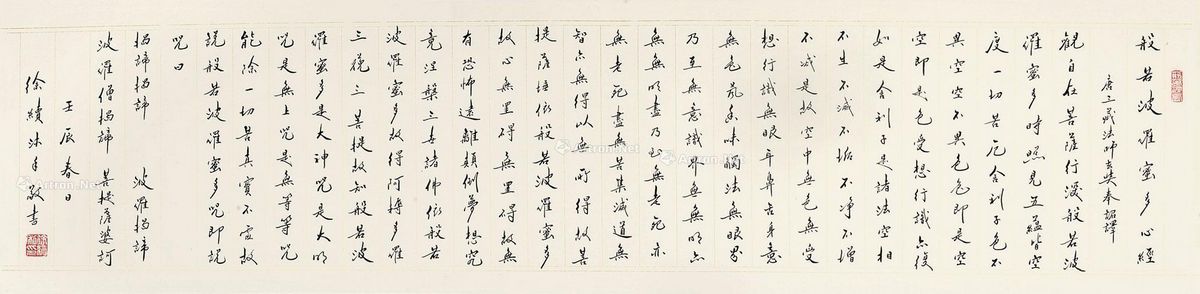 般若波羅蜜多心經
唐三藏法師玄奘奉詔譯
觀自在菩薩行深般若波
羅蜜多時照見五蘊皆空
度一切苦厄舍利子色不
異空空不異色色即是空
空即是色受想行識亦復
如是舍利子是諸法空相
不生不滅不垢不淨不增
不減是故空中無色無受
想行識無眼耳鼻舌身意
無色聲香味觸法無眼界
乃至無意識界無無明亦
無無明盡乃至無老死亦
無老死盡無苦集滅道無
智亦無得以無所得故菩
提薩埵依般若波羅蜜多
故心無罣礙無罣礙故無
有恐怖遠離顛倒夢想究
竟涅槃三世諸佛依般若
波羅蜜多故得阿耨多羅
三藐三菩提故知般若波
羅蜜多是大神咒是大明
咒是無上咒是無等等咒
能除一切苦真實不虛故
說般若波羅蜜多咒即說
咒曰
揭諦揭諦 波羅揭諦
波羅僧揭諦 菩提薩婆訶
壬辰春日
徐績沐手敬書
Artron.Net